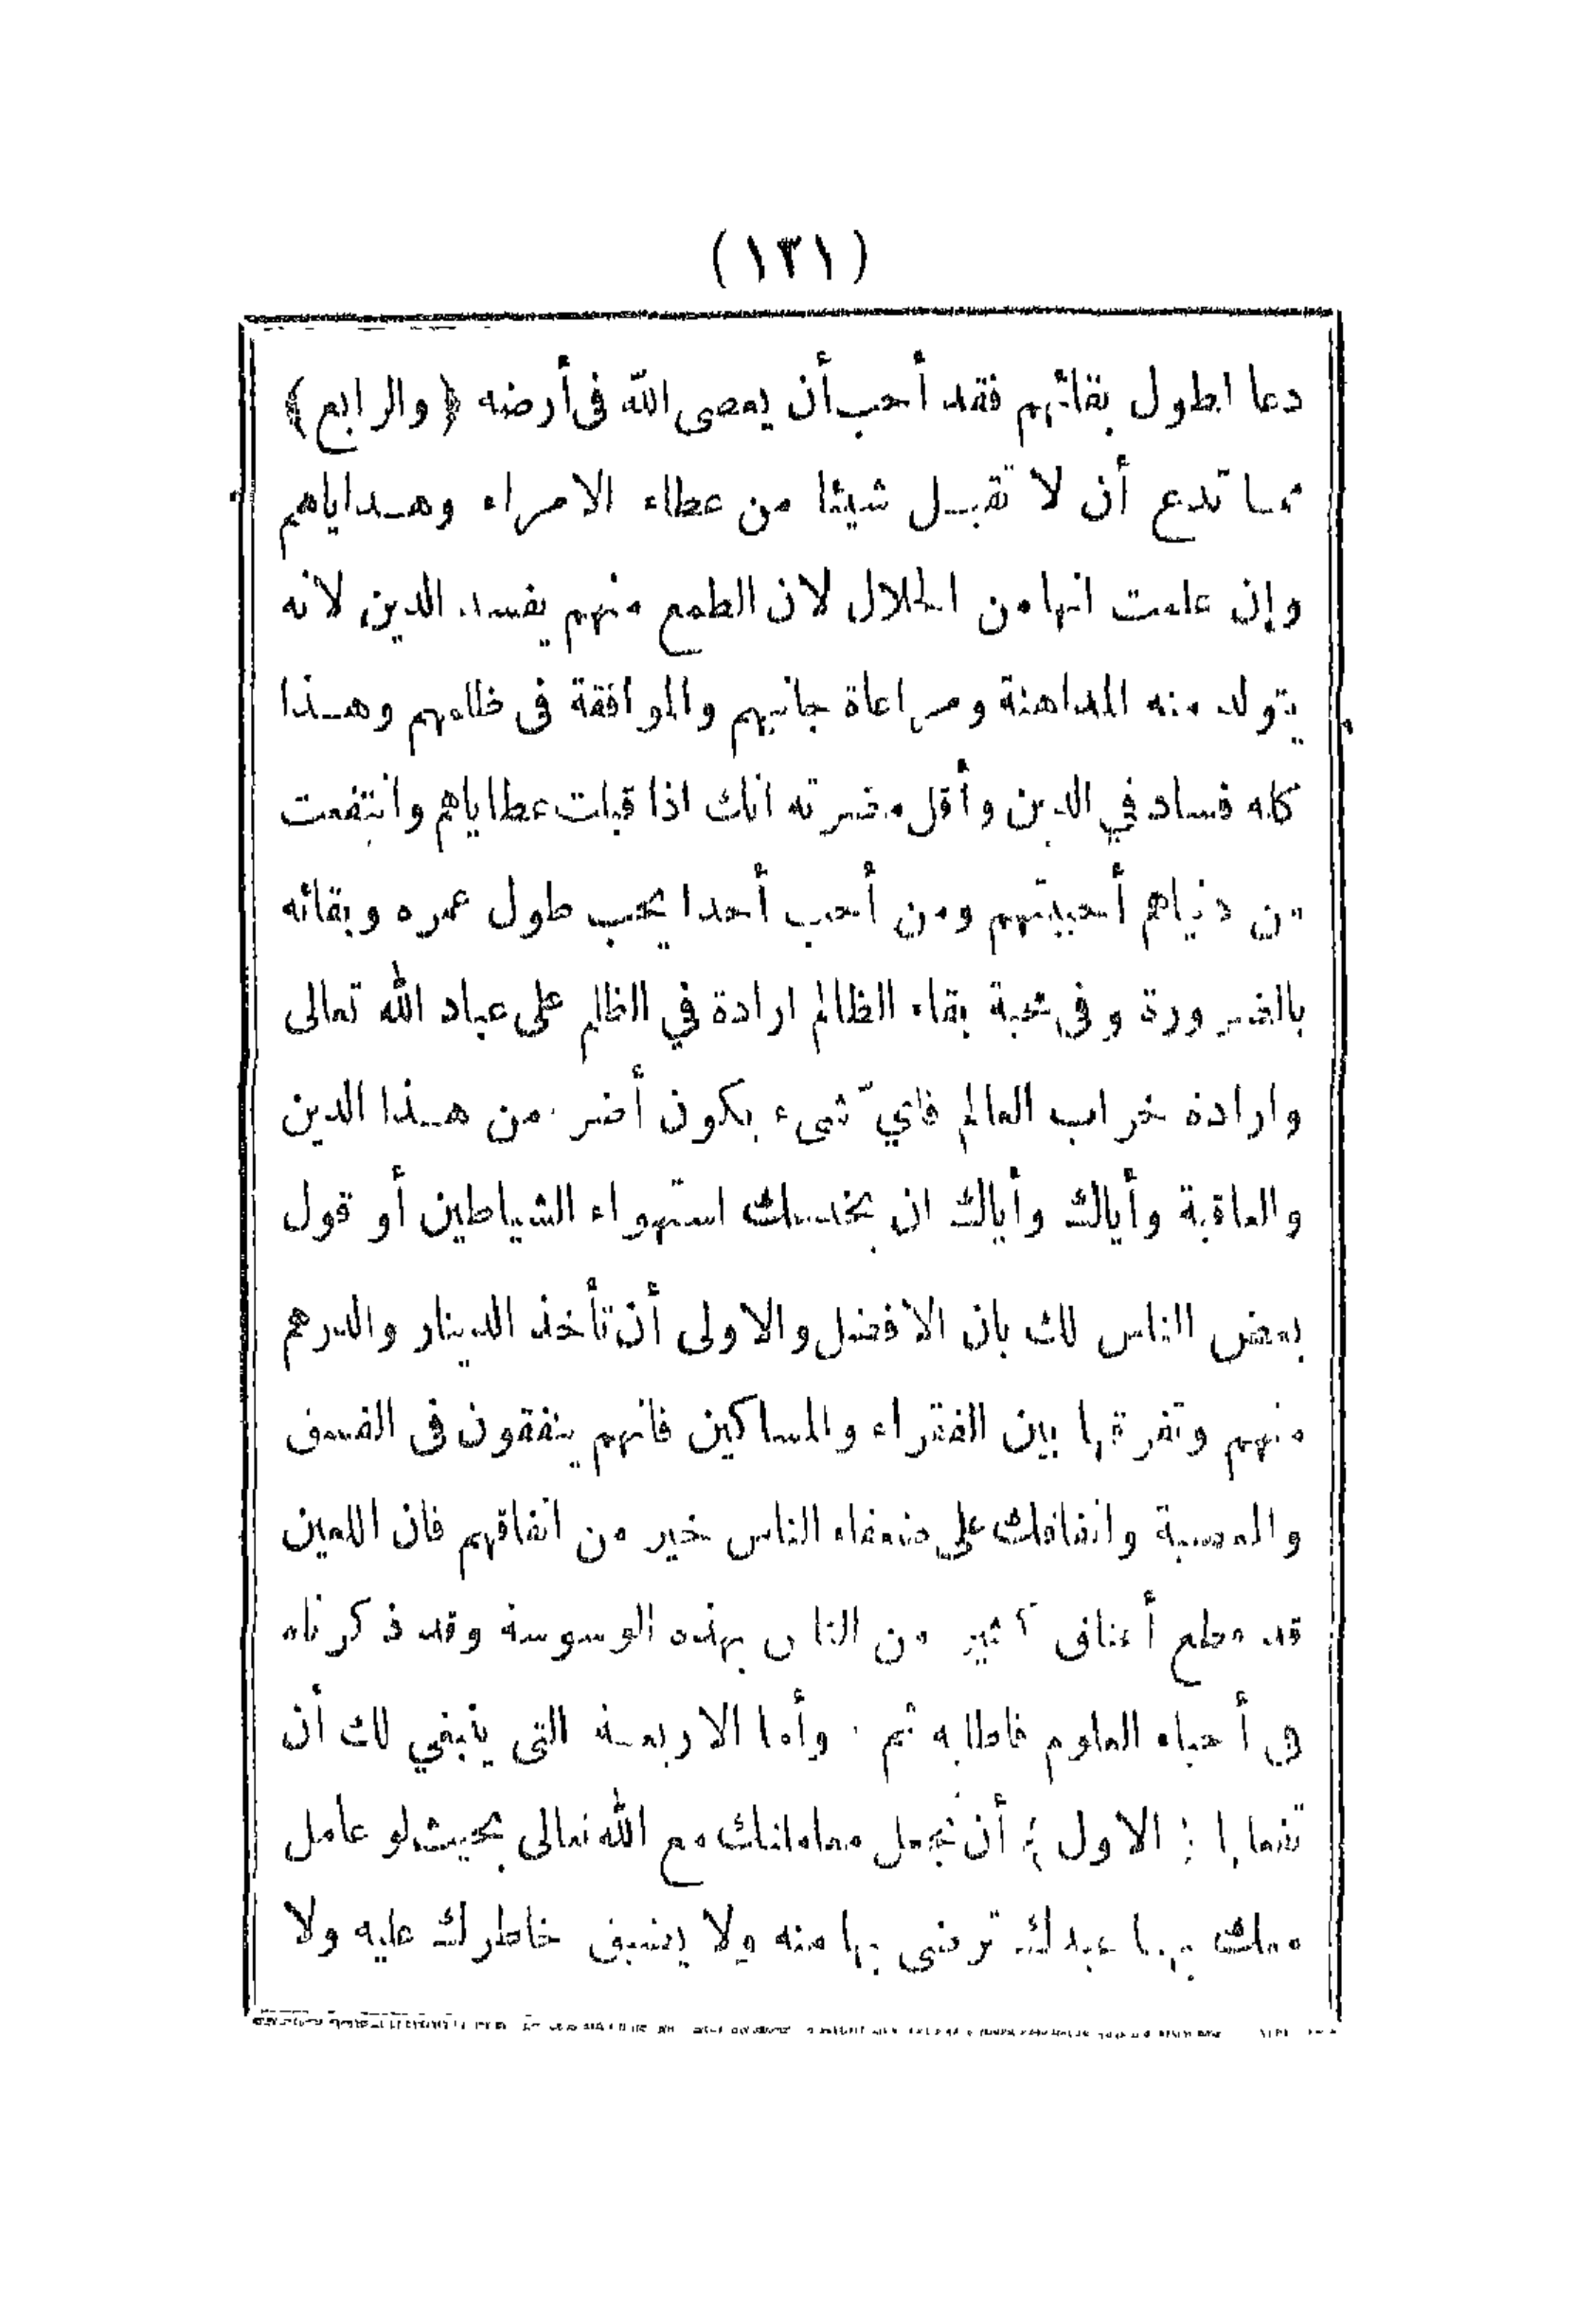 (١٣١)
دعا لطول بقائهم فقد أحب أن يعصى الله فى أرضه ﴿والرابع﴾
مما تدع أن لا تقبل شيئا من عطاء الامراء وهداياهم
وإن علمت انها من الحلال لان الطمع منهم يفسد الدين لانه
يتولد منه المداهنة ومراعاة جانبهم والموافقة فى ظلمهم وهذا
كله فساد في الدين وأقل مضرته انك اذا قبلت عطاياهم وانتفعت
من دنياهم أحببتهم ومن أحب أحدا يحب طول عمره وبقائه
بالضرورة وفى محبة بقاء الظالم ارادة في الظلم على عباد الله تعالى
وارادة خراب العالم فاي شىء يكون أضر من هذا الدين
والعاقبة وأياك وأياك ان يخدعك استهواء الشياطين أو قول
بعض الناس لك بان الافضل والاولى أن تأخذ الدينار والدرهم
منهم وتفرقها بين الفقراء والمساكين فانهم ينفقون فى الفسق
والمعصية وانفاقك على ضعفاء الناس خير من انفاقهم فان اللعين
قد قطع أعناق كثير من الناس بهذه الوسوسة وقد ذكرناه
فى أحياء العلوم فاطلبه ثم وأما الاربعة التى ينبغي لك أن
تفعلها ﴿الاول﴾ أن تجعل معاملتك مع الله تعالى بحيث لو عامل
معك بها عبدك ترضى بها منه ولا يضيق خاطرك عليه ولا